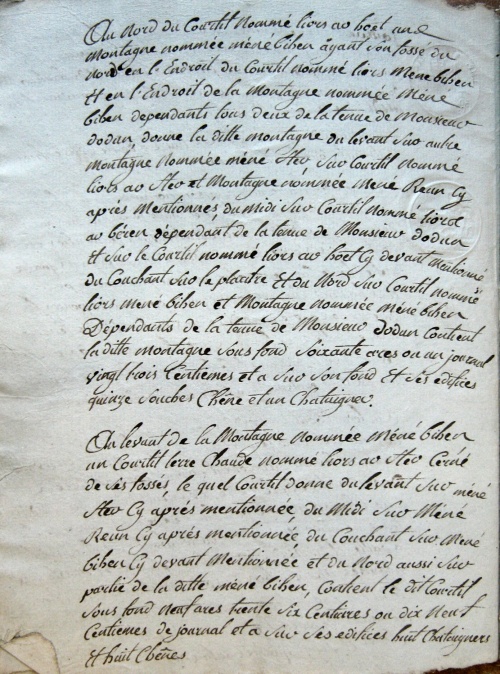 Au Nord du Courtil nommé liors ar hoët une
Montagne nommée méné bihen ayant son fossé du
nord en l'Endroit du Courtil nommé liors Méné bihen
Et en l'Endroit de la Montagne nommée Méné
bihen dépendants tous deux de la tenue de Monsieur
dodun, donne la ditte montagne du levant sur autre
montagne nommée méné Stêr sur Courtil nommé
liors ar Stêr et Montagne nommée Méné Reun Cy
après Mentionnés, du Midi sur Courtil nommé liors
ar béren dépendant de la tenue de Monsieur dodun
Et sur le Courtil nommé liors ar hoët Cy devant mentionné
du Couchant sur le placitre Et du Nord sur Courtil nommé
liors méné bihen et Montagne nommée méné bihen
Dépendants de la tenue de Monsieur dodun Contient
la ditte montagne sous fond Soixante ares ou un journal
vingt trois Centiemes et a sur son fond Et ses édifices
quinze Souches Chêne et un Chataigner.
Au levant de la Montagne nommée méné bihen
un Courtil terre Chaude nommé liors ar Stêr Cerné
de ses fossés, le quel Courtil donne du levant sur méné
Stêr Cy après mentionnée, du Midi sur Méné
Reun Cy après mentionnée, du Couchant sur Méné
bihen Cy devant Mentionnée et du Nord aussi sur
partie de la ditte méné bihen, Contient le dit Courtil
sous fond neuf ares trente Six Centiares ou dix neuf
Centiemes de journal et a sur ses édifices huit Chataigners
Et huit Chênes